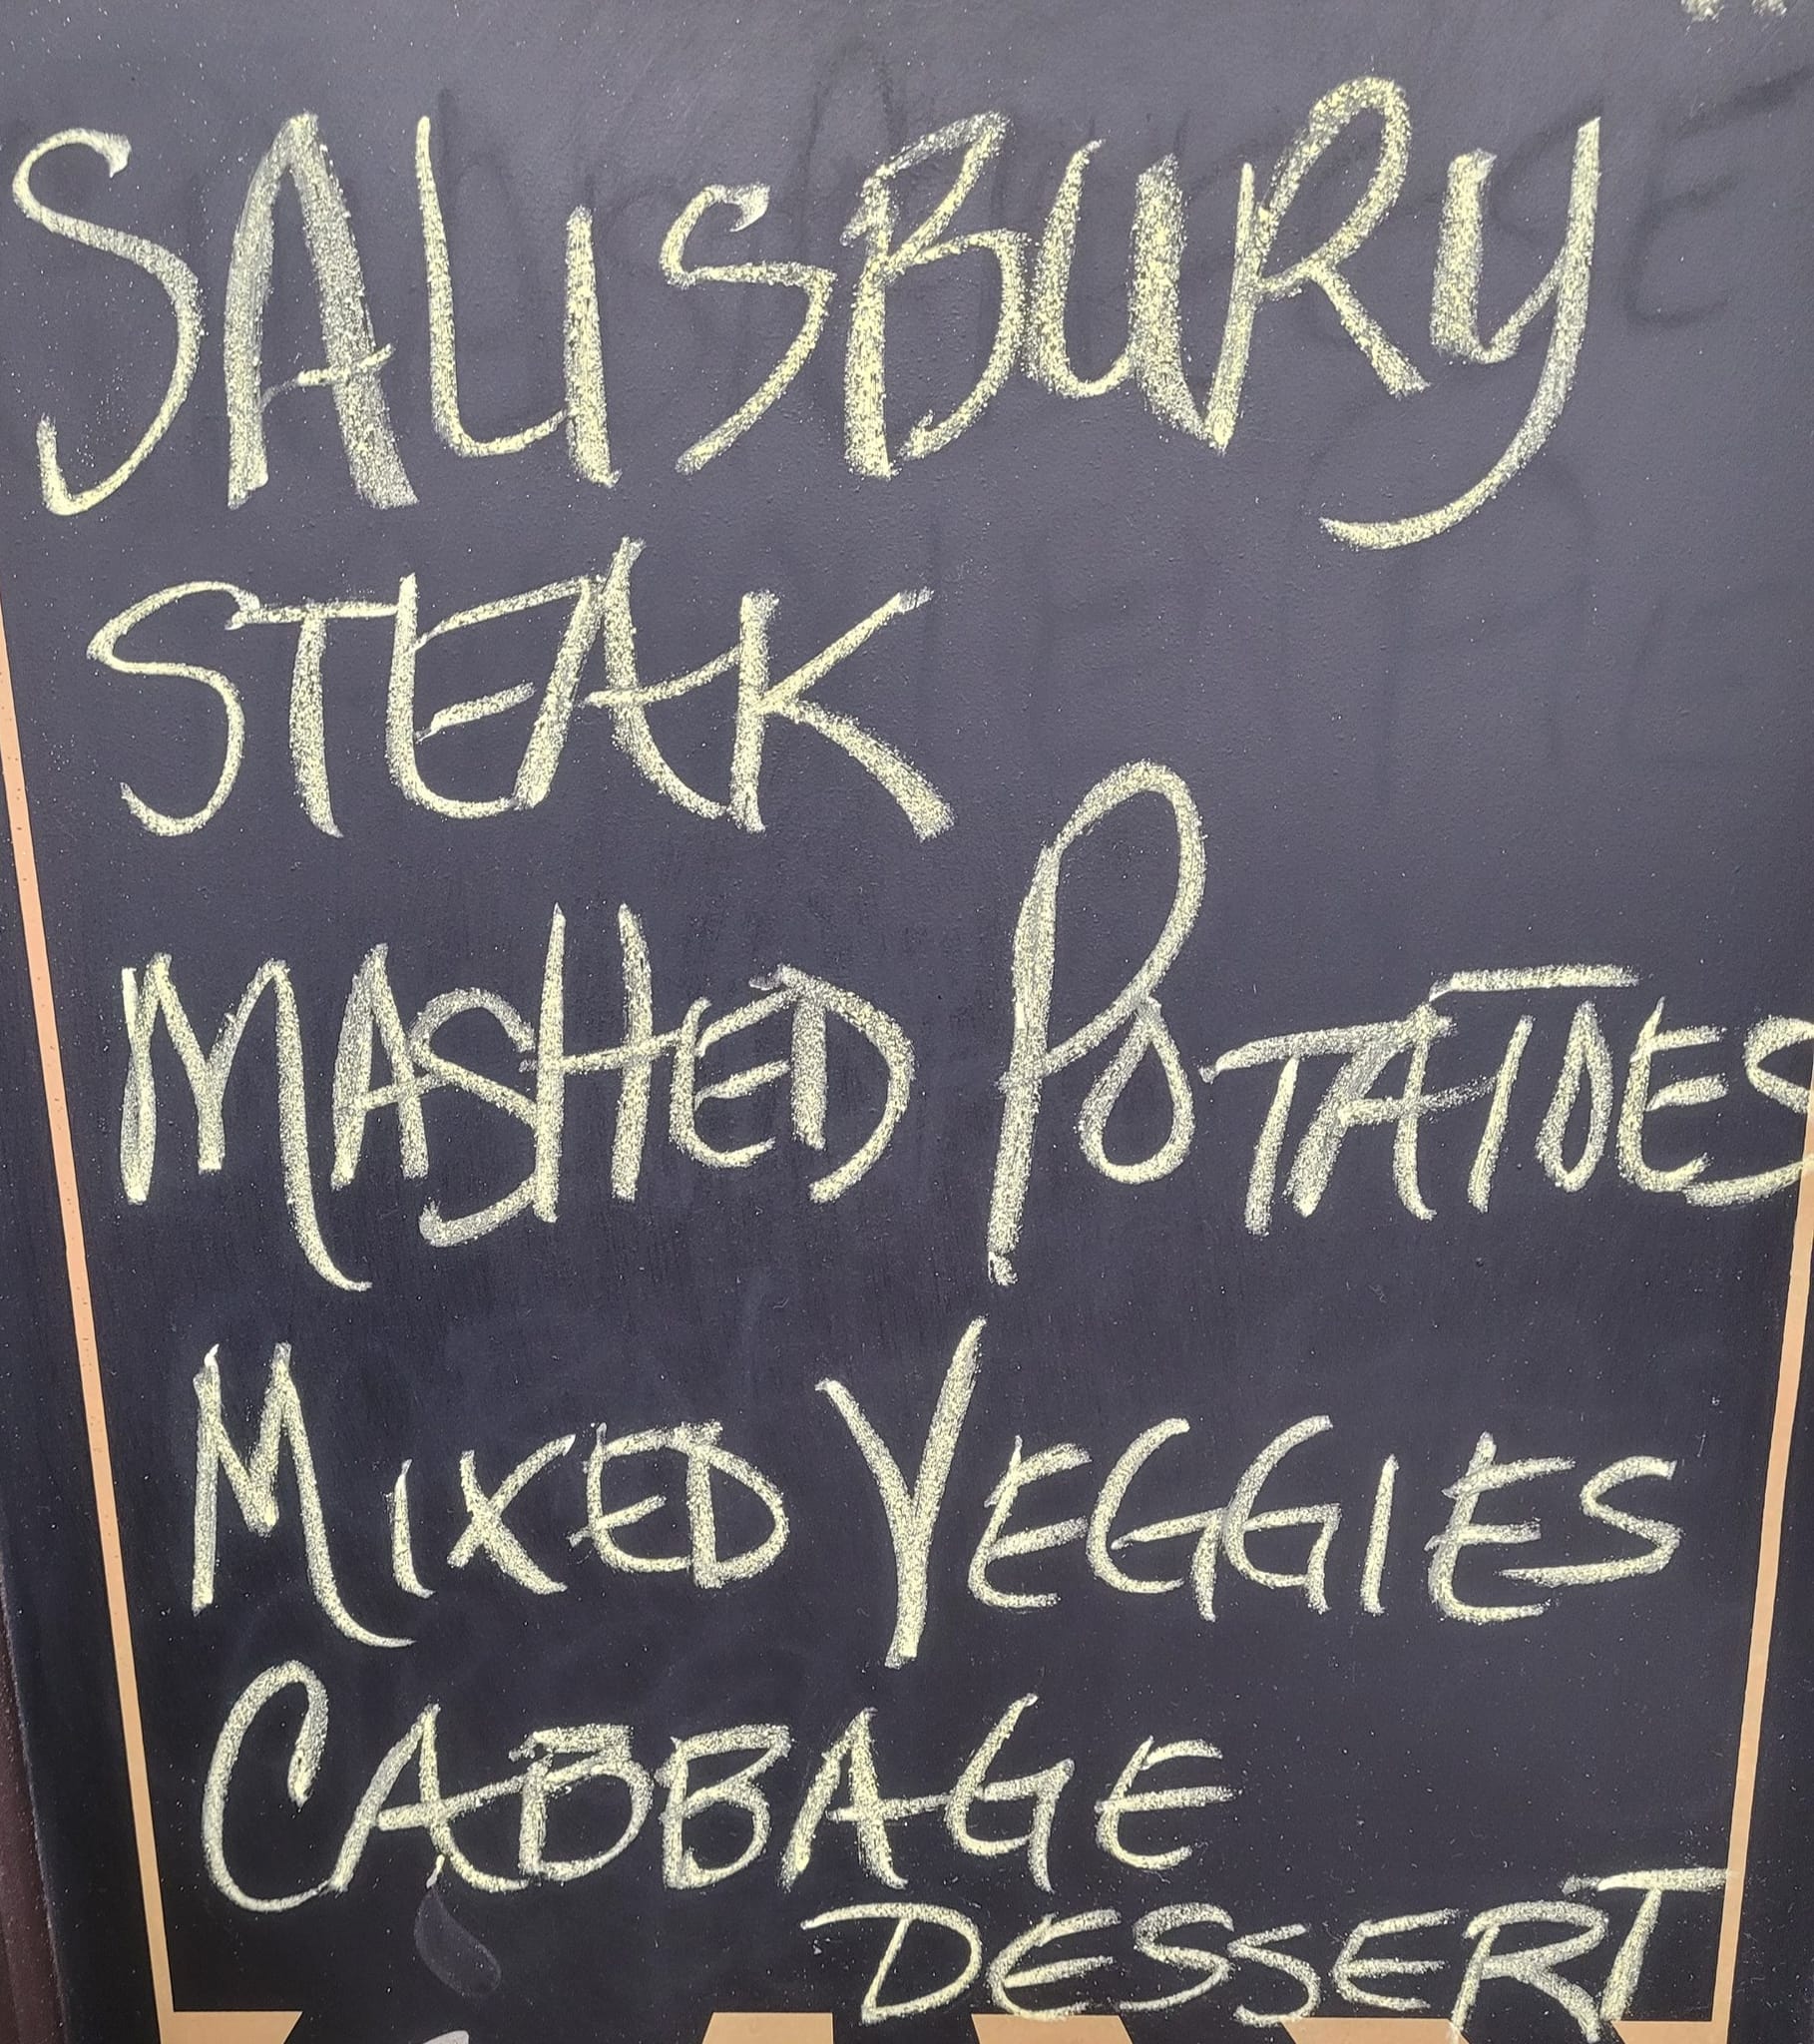 SALISBURY
STEAK
MASHED POTATOES
MIXED VEGGIES
CABBAGE
DESSERT